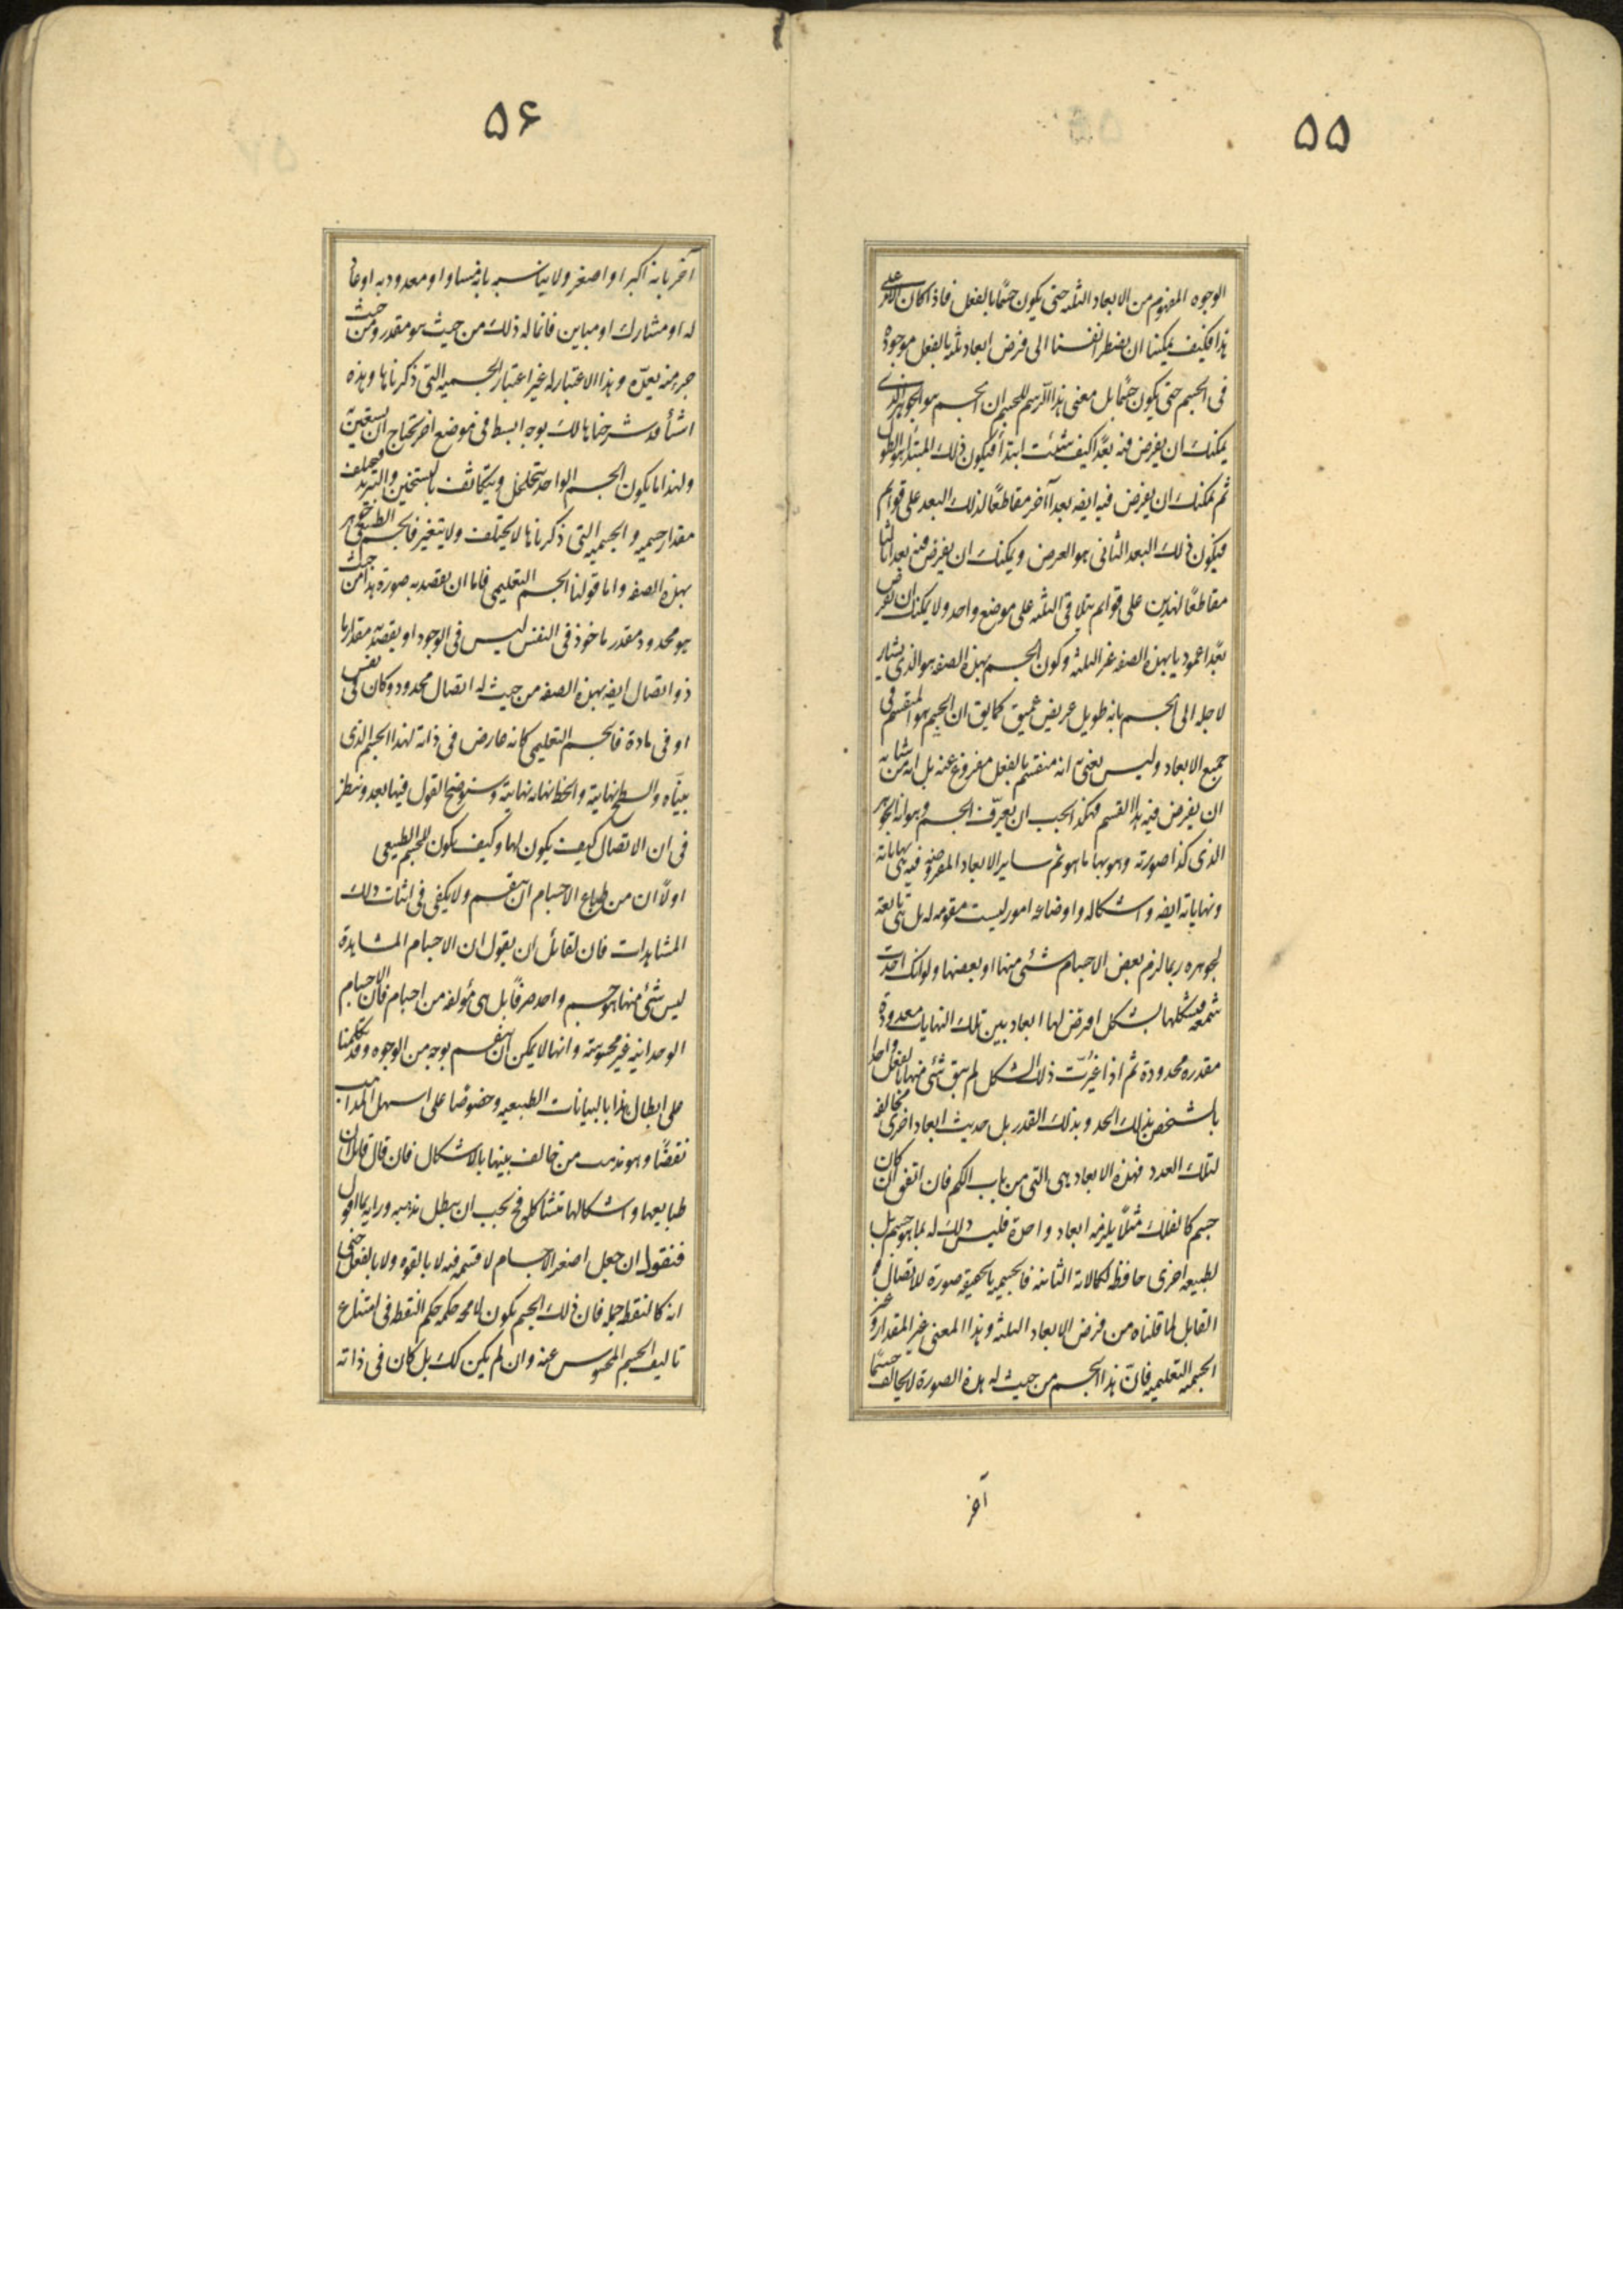 ۵۵
الوجوه المفهوم من الابعاد الثلثه حتى يكون جسما بالفعل فاذا كان الامر على
هذا فكيف يمكننا ان نضطر انفسنا الى فرض ابعاد ثلثه بالفعل موجوده
فى الجسم حتى يكون جسمًا بل معنى هذا الرسم للجسم ان الجسم هو الجوهر الذى
يمكنك ان يفرض فيه بعدًا كيف شئت ابتدأ فيكون ذلك المبتدأ هو الطول
ثم يمكنك ان يفرض فيه ايضه بعد آاخر مقاطعًا لذلك البعد على قوايم
فيكون ذلك البعد الثانى هو العرض ويمكنك ان يفرض فيه بعدا ثالثا
مقاطعًا لهذين على قوايم يتلاقى الثلثه على موضع واحد ولا يمكنك ان تفرض
بعدًا عموديا بهذه الصفه غير الثلثه وكون الجسم بهذه الصفه هو الذى يشار
لاجله الى الجسم بانه طويل عريض عميق كمايق ان الجسم هو المنقسم فى
جميع الابعاد وليس يعنى به انه منقسم بالفعل مفروغ عنه بل انه من شانه
ان يفرض فيه هذا القسم فهكذا يجب ان يعرّف الجسم وهو انه الجوهر
الذى كذا صورته وهو بها ما هو ثم ساير الابعاد المفروضه فيه بين نهاياته
ونهاياته ايضه واشكاله واوضاعه امور ليست مقومه له بل هى تابعة
لجوهره ربما لزم بعض الاجسام شئى منها او بعضها ولو انك اخذت
شمعه فشكلتها بشكل افترض لها ابعاد بين تلك النهايات معدودة
مقدره محدودة ثم اذا غيّرت ذلك الشكل لم يبق شئى منها بالفعل واحدا
بالشخص بذلك الحد وبذلك القدر بل حدثت ابعاد اخرى مخالفه
لتلك العدد فهذه الابعاد هى التى من باب الكم فان اتفق ان كان
جسم كالفلك مثلًا يلزمه ابعاد واحدة فليس ذلك له بما هو جسم بل
لطبيعه اخرى حافظه لكمالاته الثانيه فالجسميه بالحقيقه صورة الاتصال
القابل لما قلناه من فرض الابعاد الثلثه وهذا المعنى غير المقدار وغير
الجسميه التعليميه فانّ هذا الجسم من حيث له هذه الصورة لا يخالف جسمًا
آخر
۵۶
آخر بانه اكبر او اصغر ولا يناسبه بانه مساو او معدود به او عاد
له او مشارك او مباين فانما له ذلك من حيث هو مقدر ومن حيث
جزء منه يعدّه وهذا الاعتبار له غير اعتبار الجسميه التى ذكرناها وهذه
اشيأ قد شرحناها لك بوجه ابسط فى موضع اخر تحتاج ان تستعين به
ولهذا ما يكون الجسم الواحد يتخلخل ويتكاثف بالتسخين والتبريد فيختلف
مقدار جسميه والجسميه التى ذكرناها لا يختلف ولا يتغير فالجسم الطبيعى جوهر
بهذه الصفه واما قولنا الجسم التعليمى فاما ان يقصد به صورة هذا من حيث
هو محدود مقدر ماخوذ فى النفس ليس فى الوجود او يقصد به مقدار ما
ذو اتصال ايضه بهذه الصفه من حيث له اتصال محدود وكان فى نفس
او فى مادة فالجسم التعليمى كانه عارض فى ذاته لهذا الجسم الذى
بينّاه والسطح نهايته والخط نهايه نهايته وسنوضح القول فيها بعد وننظر
فى ان الاتصال كيف يكون لها وكيف يكون للجسم الطبيعى
اولًا ان من طباع الاجسام ان تنقسم ولا يكفى فى اثبات ذلك
المشاهدات فان لقائل ان يقول ان الاجسام المشاهدة
ليس شئى منها هو جسم واحد صرفًا بل هى مؤلفه من اجسام فان الاجسام
الوحدانيه غير محسوسة وانها لا يمكن ان تنقسم بوجه من الوجوه وقد تكلمنا
على ابطال هذا بالبيانات الطبيعيه وخصوصًا على اسهل المذاهب
نقضًا وهو مذهب من خالف بينها بالاشكال فان قال قائل ان
طبايعها واشكالها متشاكله فح يجب ان يبطل مذهبه ورايه بما اقول
فنقول ان جعل اصغر الاجسام لا قسمه فيه لا بالقوه ولا بالفعل حتى
انه كالنقطه جمله فان ذلك الجسم يكون لا محه حكمه حكم النقطه فى امتناع
تاليف الجسم المحسوس عنه وان لم يكن كك بل كان فى ذاته